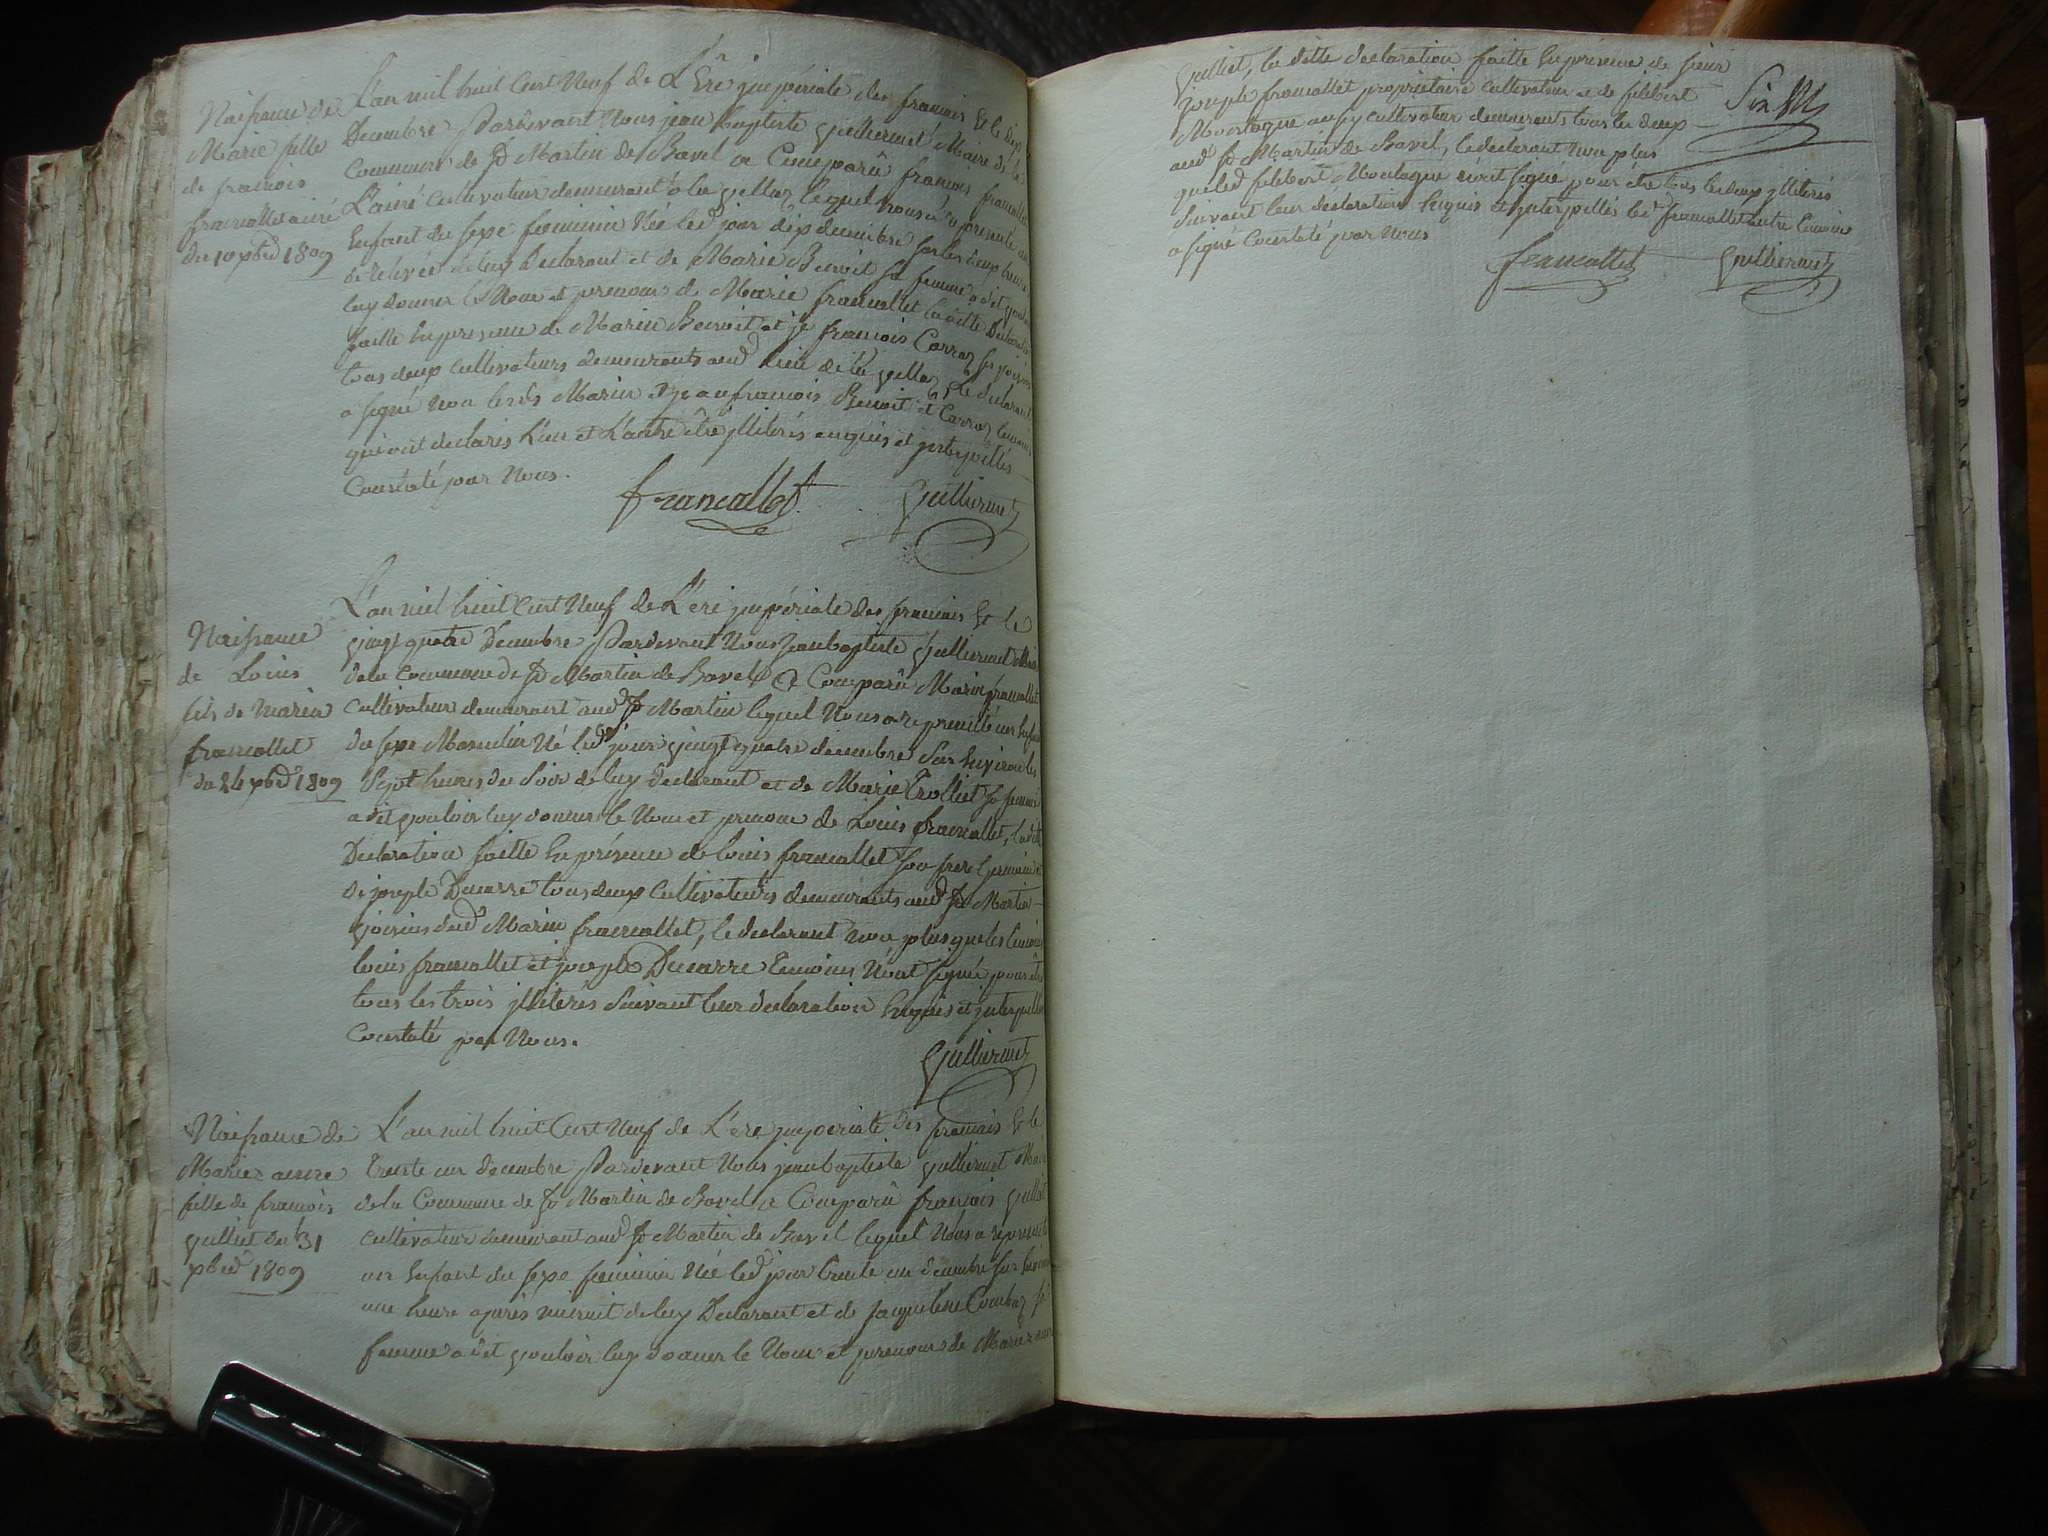 Naissance de
Marie fille
de francois
francallet ainé
du 10 xbre 1809
L'an mil huit Cent Neuf de L'Ere jmpériale des francais Et le dix
Decembre Pardevant Nous jean baptiste Guillermet Maire de la
Commune de St Martin de Bavel a Comparû francois francallet
L'ainé Cultivateur demeurant à la lequel nous a represente un
Enfant du sexe feminin Née led jour dix decembre sur les deux heures
de relevée de luy Declarant et de Marie Benoit sa femme a dit vouloir
luy donner le Nom et prenom de Marie francallet la ditte Declaration
faitte En presence de Marin Benoit et je francois Carraz ses voisins
tous deux cultivateurs demeurants aud lieu de la le declarant
a signé non lesds Marin et jean francois Benoit et Carraz temoins
qui ont declarés L'un et L'autre être jlliterés enquis et jnterpellés
Constaté par Nous.
francallet Guillermet
Naissance
de Louis
fils de marin
francallet
du 24 xbre 1809
L'an mil huit Cent Neuf de L'ere jmpériale des francais Et le
vingt quatre Decembre Pardevant Nous jean baptiste Guillermet Maire
de la Commune de St Martin de Bavel a Comparû Marin francallet
Cultivateur demeurant aud St Martin lequel Nous a representé un Enfant
du sexe Masculin Né led jour vingt quatre decembre sur Environ les
Sept heures du Soir de luy declarant et de Marie Trolliet sa femme
a dit vouloir luy donner le Nom et prenom de Louis francallet, la ditte
Declaration faitte En présence de louis francallet son frere Germain et
de joseph Ducarre tous deux Cultivateurs demeurants aud St Martin
voisins dud Marin francallet, le declarant non plus que les temoins
louis francallet et joseph Ducarre temoins N'ont signé pour être
tous les trois jlliterés suivant leur declaration Enquis et jnterpellés
Constaté par Nous.
Guillermet
Naissance de
Marie anne
fille de francois
Gulliet du 31
xbre 1809
L'an mil huit Cent Neuf de L'ere jmperiale des francais Et le
trente un decembre Pardevant Nous jean baptiste Guillermet Maire
de la Commune de St Martin de Bavel a Comparû francois Gulliet
cultivateur demeurant aud St Martin de Bavel lequel Nous a représenté
un Enfant du sexe feminin Née led jour trente un decembre sur Environ
une heure après minuit de luy Declarant et de jacqueline Combaz sa
femme a dit vouloir luy donner le Nom et prenom de Marie anne
Gulliet, la ditte declaration faitte En présence de sieur
joseph francallet propriétaire cultivateur et de filibert
Montagne aussy cultivateur demeurants tous les deux
aud St Martin de Bavel, le declarant non plus
que led filibert Montagne n'ont signé pour être tous les deux jlliterés
suivant leur déclaration Enquis et jnterpellés led francallet autre temoin
a signé Constaté par Nous
francallet Guillermet